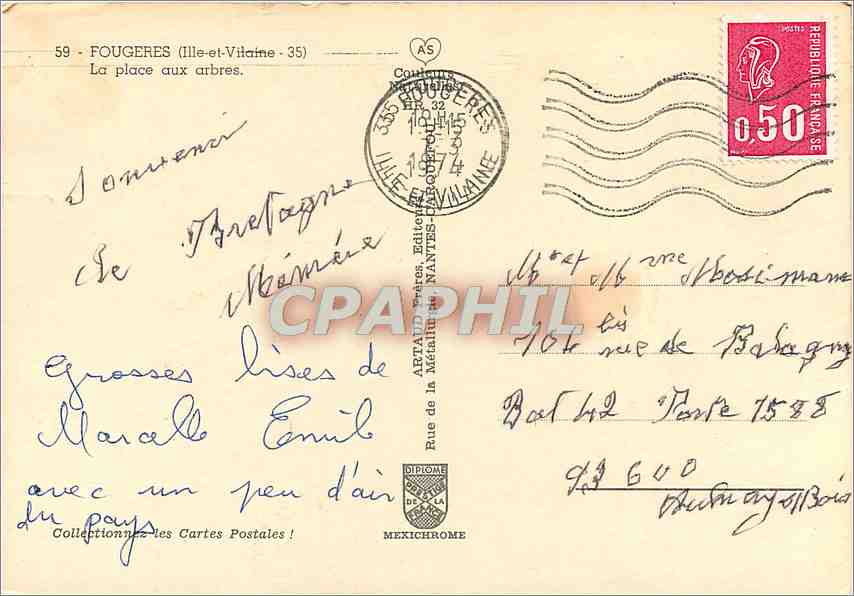 59 - FOUGERES (Ille-et-Vilaine - 35)
La place aux arbres.
AS
Couleurs
Naturelles
HR 32
355 FOUGERES
1974
ILLE-ET-VILAINE
POSTES
REPUBLIQUE FRANÇAISE
0,50
Souvenir
de Bretagne
Mémère
Grosses bises de
Marcelle Emile
avec un peu d'air
du pays
ARTAUD Frères, Editeurs
Rue de la Métallurgie, NANTES-CARQUEFOU
Mr et Mme
104 bis
rue de Balagny
Bat 42 Porte 1588
93600
Aulnay s/ Bois
CPAPHIL
DIPLOME
PRESTIGE
DE LA
FRANCE
MEXICHROME
Collectionnez les Cartes Postales !